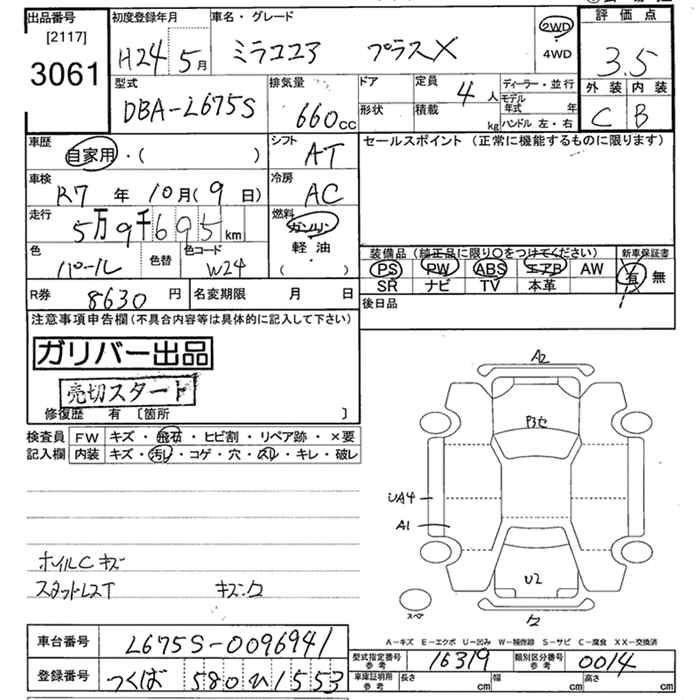 出品番号
[2117]
3061
初度登録年月
H24 5月
車名・グレード
ミラココア プラスX
2WD
・
4WD
評価点
3.5
外装 内装
C B
型式
DBA-L675S
排気量
660cc
ドア
形状
定員
4人
積載
kg
ディーラー・並行
モデル年式 年
ハンドル 左・右
車歴
自家用・( )
シフト
AT
セールスポイント (正常に機能するものに限ります)
車検
R7年10月(9日)
冷房
AC
走行
5万9千695km
燃料
ガソリン
軽・油
( )
色
パール
色替
色コード
W24
装備品 (純正品に限り○をつけてください)
PS PW ABS エアB AW
SR ナビ TV 本革
新車保証書
有 無
R券 8630円
名変期限 月 日
後日品
注意事項申告欄(不具合内容等は具体的に記入して下さい)
ガリバー出品
売切スタート
修復歴 有 [箇所 ]
検査員記入欄
FW キズ・飛石・ヒビ割・リペア跡・×要
内装 キズ・汚レ・コゲ・穴・スレ・キレ・破レ
ホイルCキズ
スタットレスT
A2
P3セ
UA4
A1
U2
スペア
A-キズ E-エクボ U-凹み W-補修跡 S-サビ C-腐食 XX-交換済
車台番号 L675S-0096941
登録番号 つくば 580 ひ 1553
型式指定番号 参考 16319
類別区分番号 参考 0014
車庫証明用 参考
長さ cm
幅 cm
高さ cm